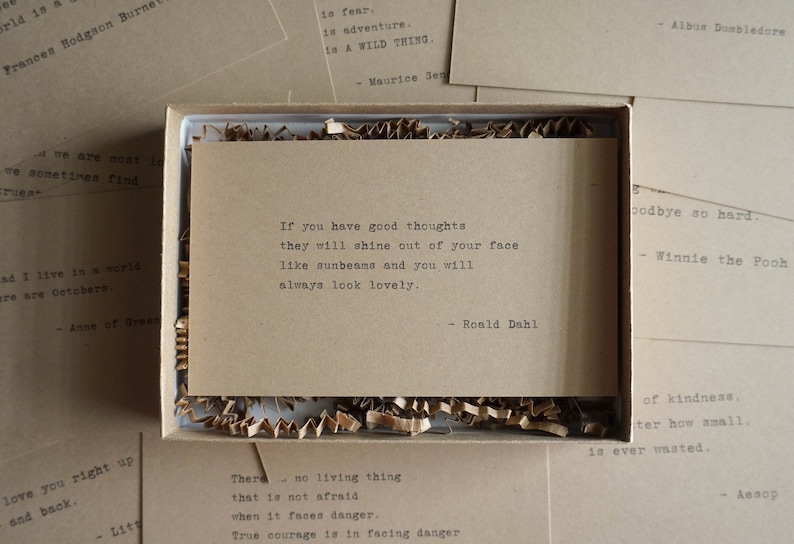 rld is a
Frances Hodgson Burnet
is fear.
is adventure.
is A WILD THING.
- Maurice Sen
- Albus Dumbledore
we are most lo
we sometimes find
truest
ad I live in a world
ere are Octobers.
- Anne of Green
If you have good thoughts
they will shine out of your face
like sunbeams and you will
always look lovely.
- Roald Dahl
oodbye so hard.
- Winnie the Pooh
of kindness,
ter how small,
is ever wasted.
- Aesop
love you right up
and back.
- Litt
There no living thing
that is not afraid
when it faces danger.
True courage is in facing danger